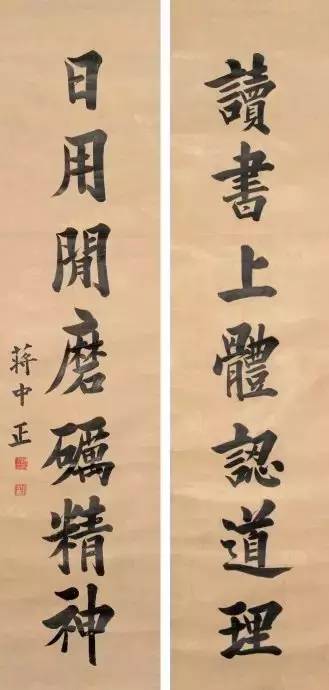 讀書上體認道理
日用閒磨礪精神
蔣中正